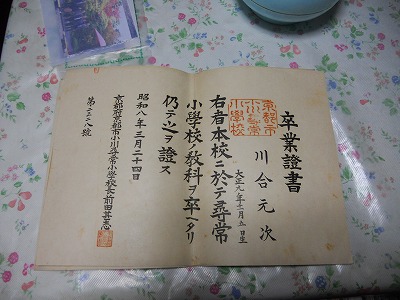 卒業證書
京都市
小川尋常
小學校
川合元次
大正九年二月五日生
右者本校ニ於テ尋常
小學校ノ教科ヲ卒ヘタリ
仍テ之ヲ證ス
昭和八年三月二十四日
京都府京都市小川尋常小學校長前田甚惠
第二三二八號